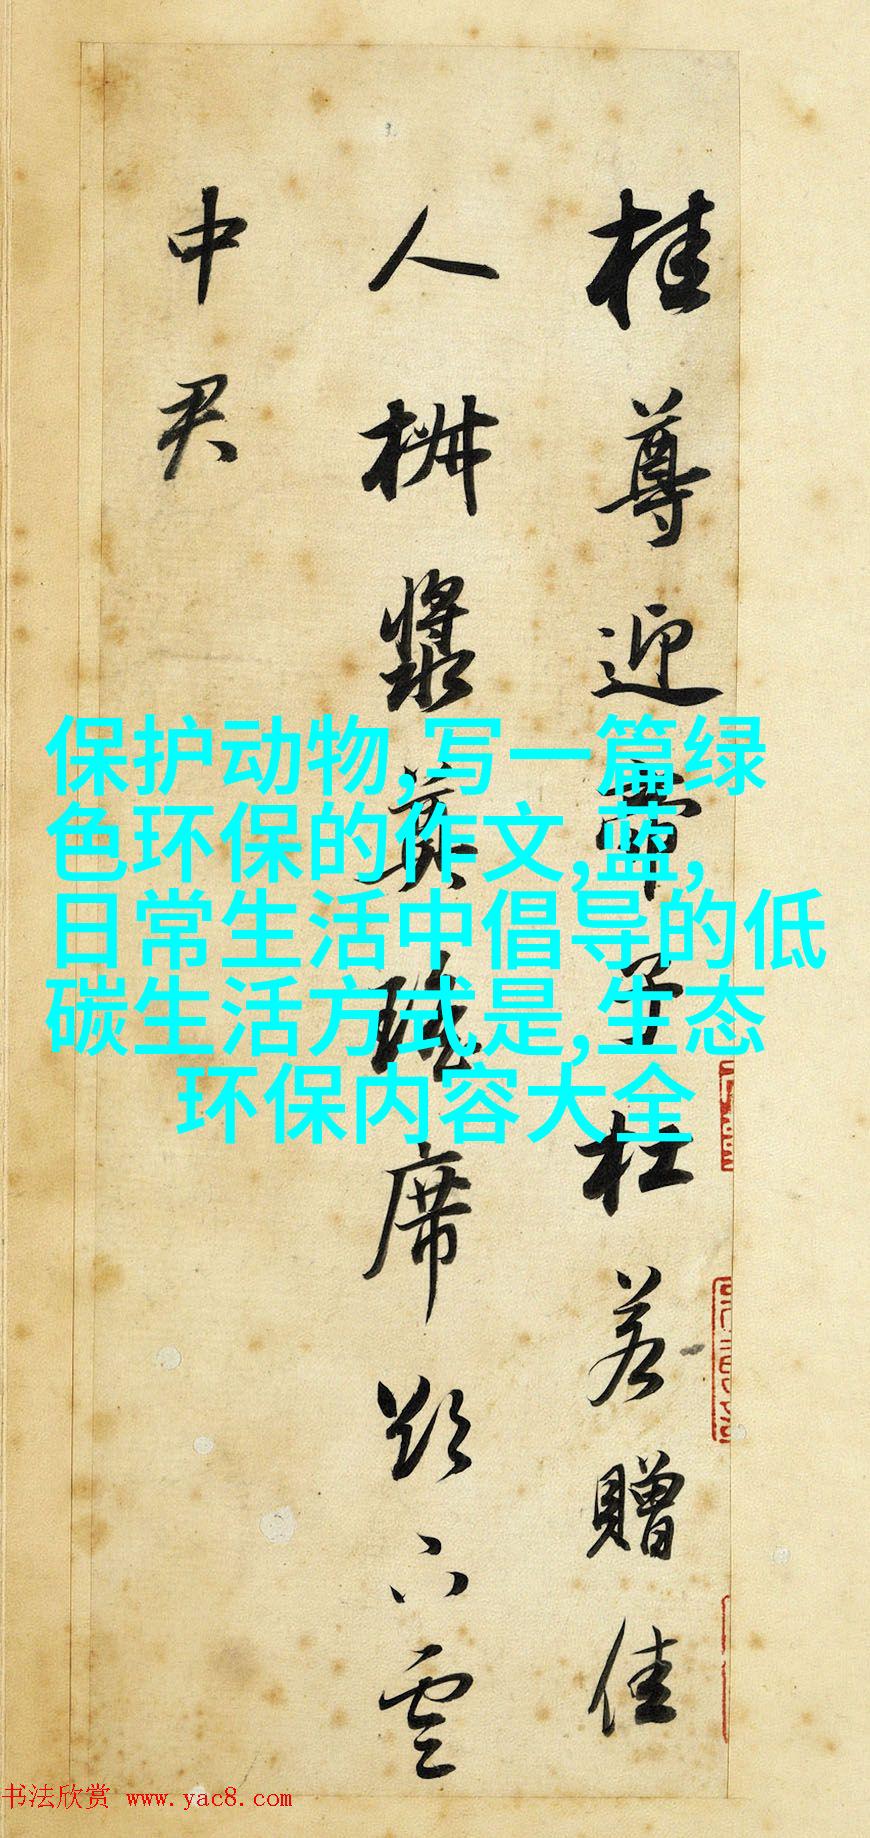 桂尊迎帝子杜若贈佳
人椒漿奠瑤席欲下雲
中君
保护动物,写一篇绿
色环保的作文,蓝,
日常生活中倡导的低
碳生活方式是,生态
环保内容大全
书法欣赏 www.yac8.com